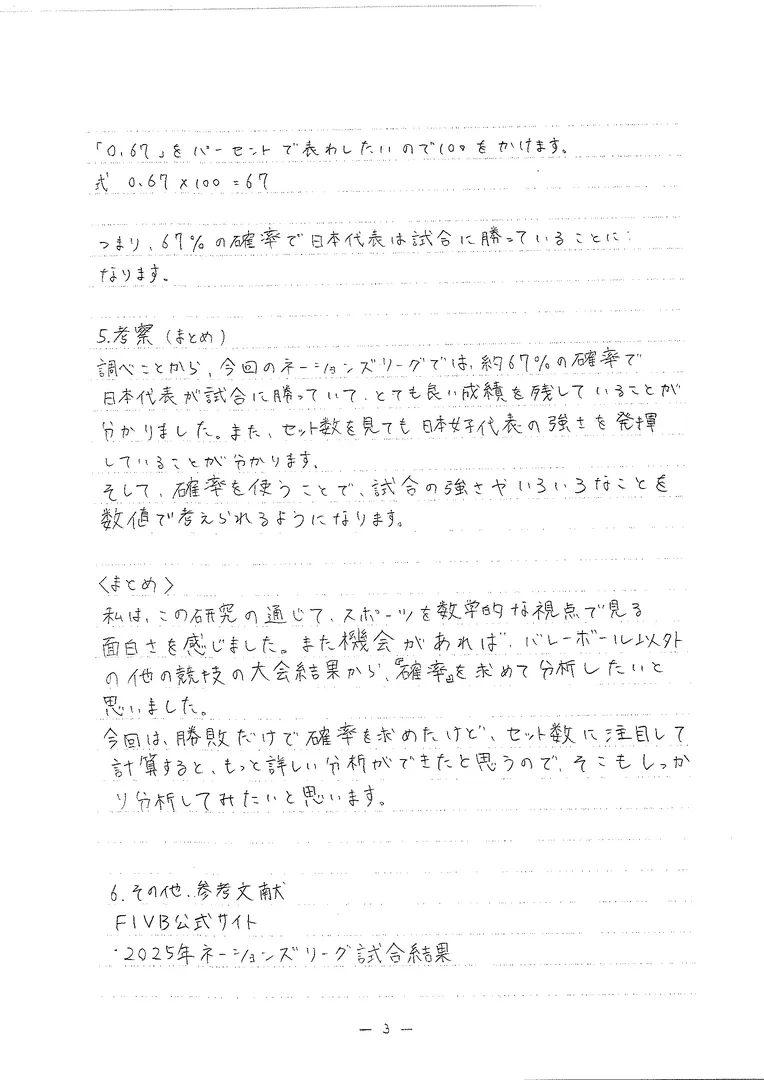 「0.67」をパーセントで表わしたいので100をかけます。
式 0.67×100=67
つまり、67%の確率で日本代表は試合に勝っていることに
なります。
5.考察(まとめ)
調べことから、今回のネーションズリーグでは、約67%の確率で
日本代表が試合に勝っていて、とても良い成績を残していることが
分かりました。また、セット数を見ても日本女子代表の強さを発揮
していることが分かります。
そして、確率を使うことで、試合の強さやいろいろなことを
数値で考えられるようになります。
〈まとめ〉
私は、この研究の通じて、スポーツを数学的な視点で見る
面白さを感じました。また機会があれば、バレーボール以外
の他の競技の大会結果から、『確率』を求めて分析したいと
思いました。
今回は、勝敗だけで確率を求めたけど、セット数に注目して
計算すると、もっと詳しい分析ができたと思うので、そこもしっか
り分析してみたいと思います。
6.その他、参考文献
FIVB公式サイト
・2025年ネーションズリーグ試合結果
- 3 -